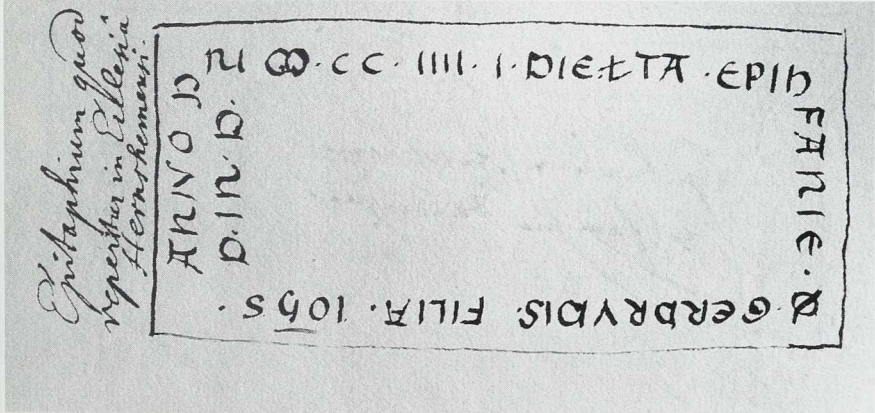 Epitaphium quod
reperitur in Ecclesiâ
Hernshemensi.
ANNO D
NI ꝏ·CC·IIII·I·DIEŁTA·EPIH
FANIE·Ø
·GERDRVDIS FILIA·IOHS·
D·IN·D·